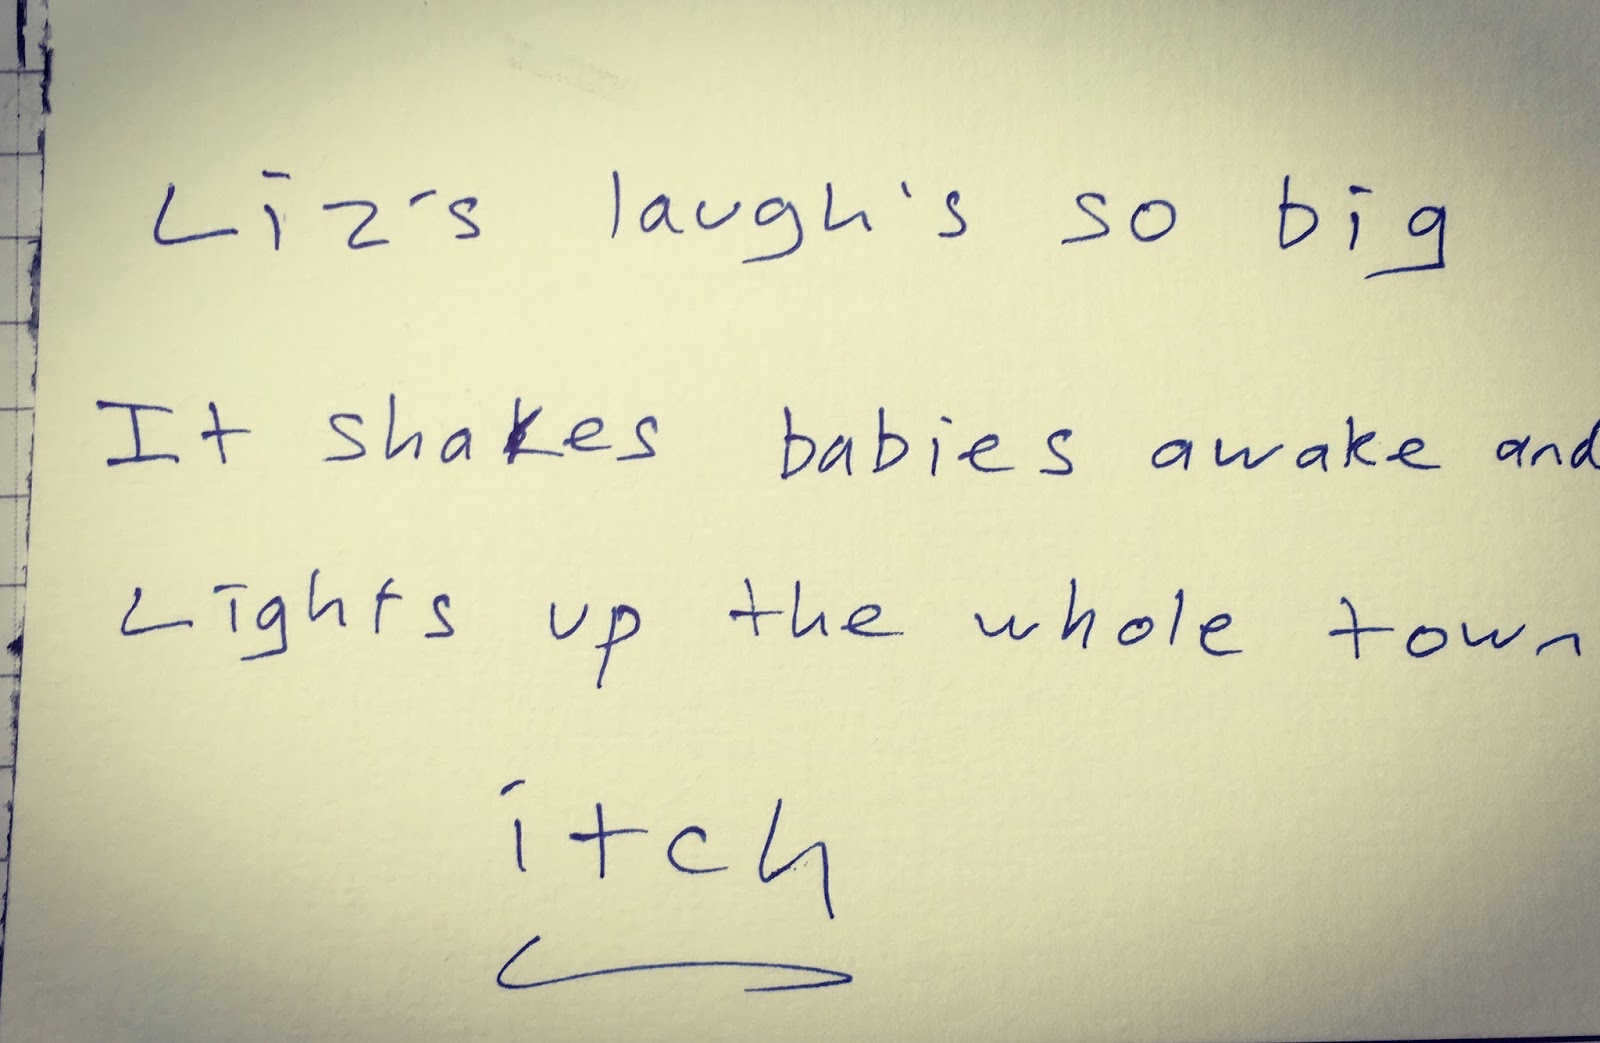 Liz's laugh's so big
It shakes babies awake and
Lights up the whole town
itch